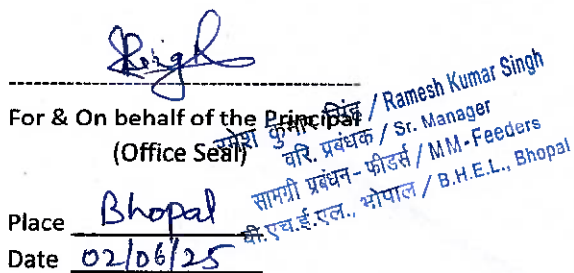 For & On behalf of the Principal
(Office Seal)
रमेश कुमार सिंह / Ramesh Kumar Singh
वरि. प्रबंधक / Sr. Manager
सामग्री प्रबंधन - फीडर्स / MM-Feeders
बी.एच.ई.एल., भोपाल / B.H.E.L., Bhopal
Place Bhopal
Date 02/06/25